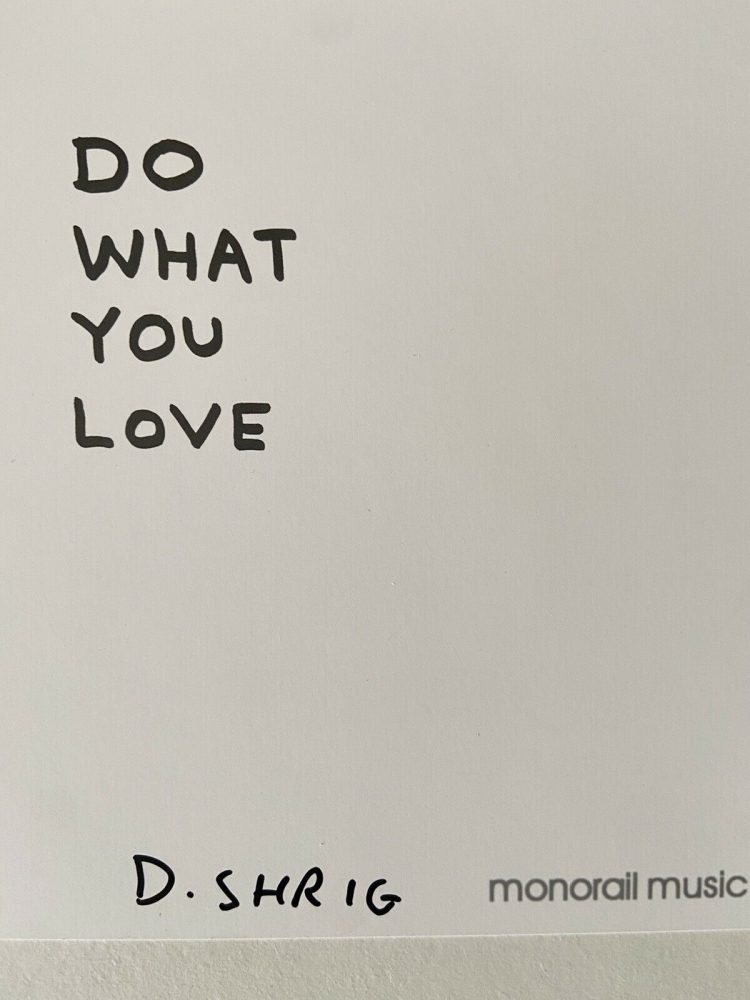 DO
WHAT
YOU
LOVE
D. SHRIG
monorail music